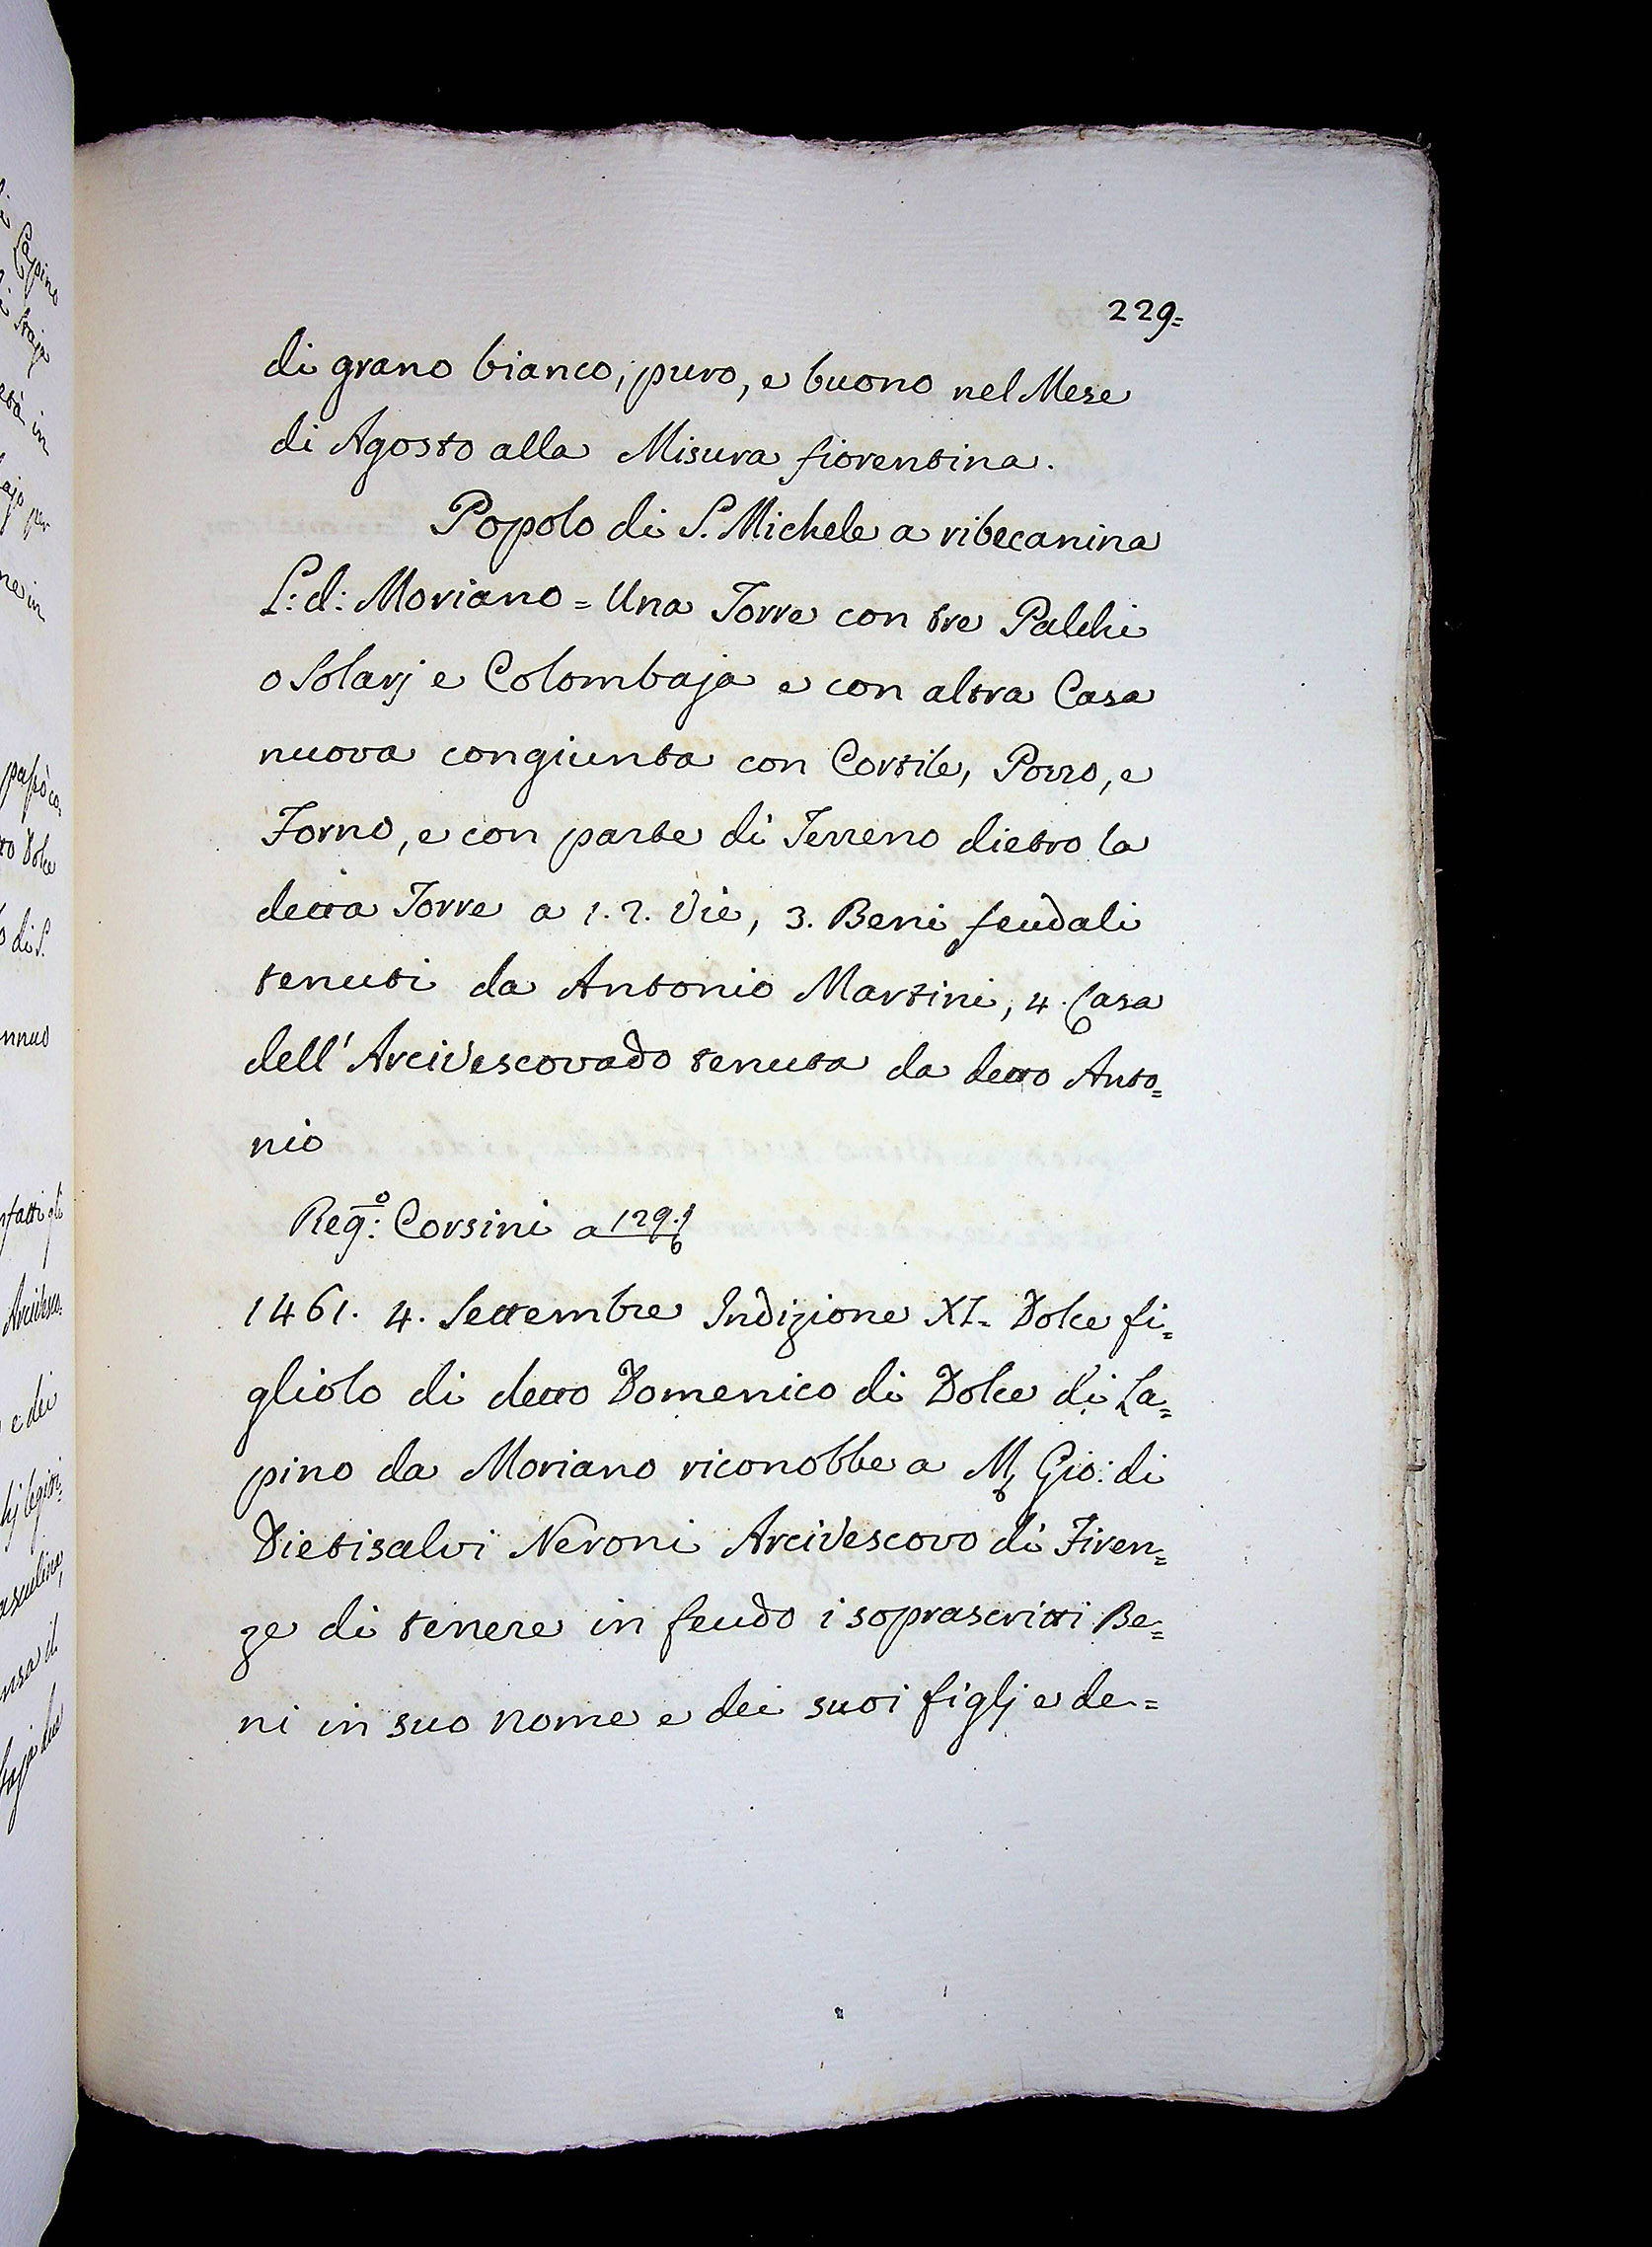 229=
di grano bianco, puro, e buono nel Mese
di Agosto alla Misura fiorentina.
Popolo di S. Michele a ribecanina
L: d: Moriano = Una Torre con tre Palchi
o Solarj e Colombaja e con altra Casa
nuova congiunta con Cortile, Pozzo, e
Forno, e con parte di Terreno dietro la
detta Torre a 1. 2. Vie, 3. Beni feudali
tenuti da Antonio Martini, 4. Casa
dell' Arcivescovado tenuta da detto Anto=
nio
Reg:º Corsini a 129.
1461. 4. Settembre Indizione XI. Dolce fi=
gliolo di detto Domenico di Dolce di La=
pino da Moriano riconobbe a M. Gio: di
Dietisalvi Neroni Arcivescovo di Firen=
ze di tenere in feudo i soprascritti Be=
ni in suo nome e dei suoi figlj e de=